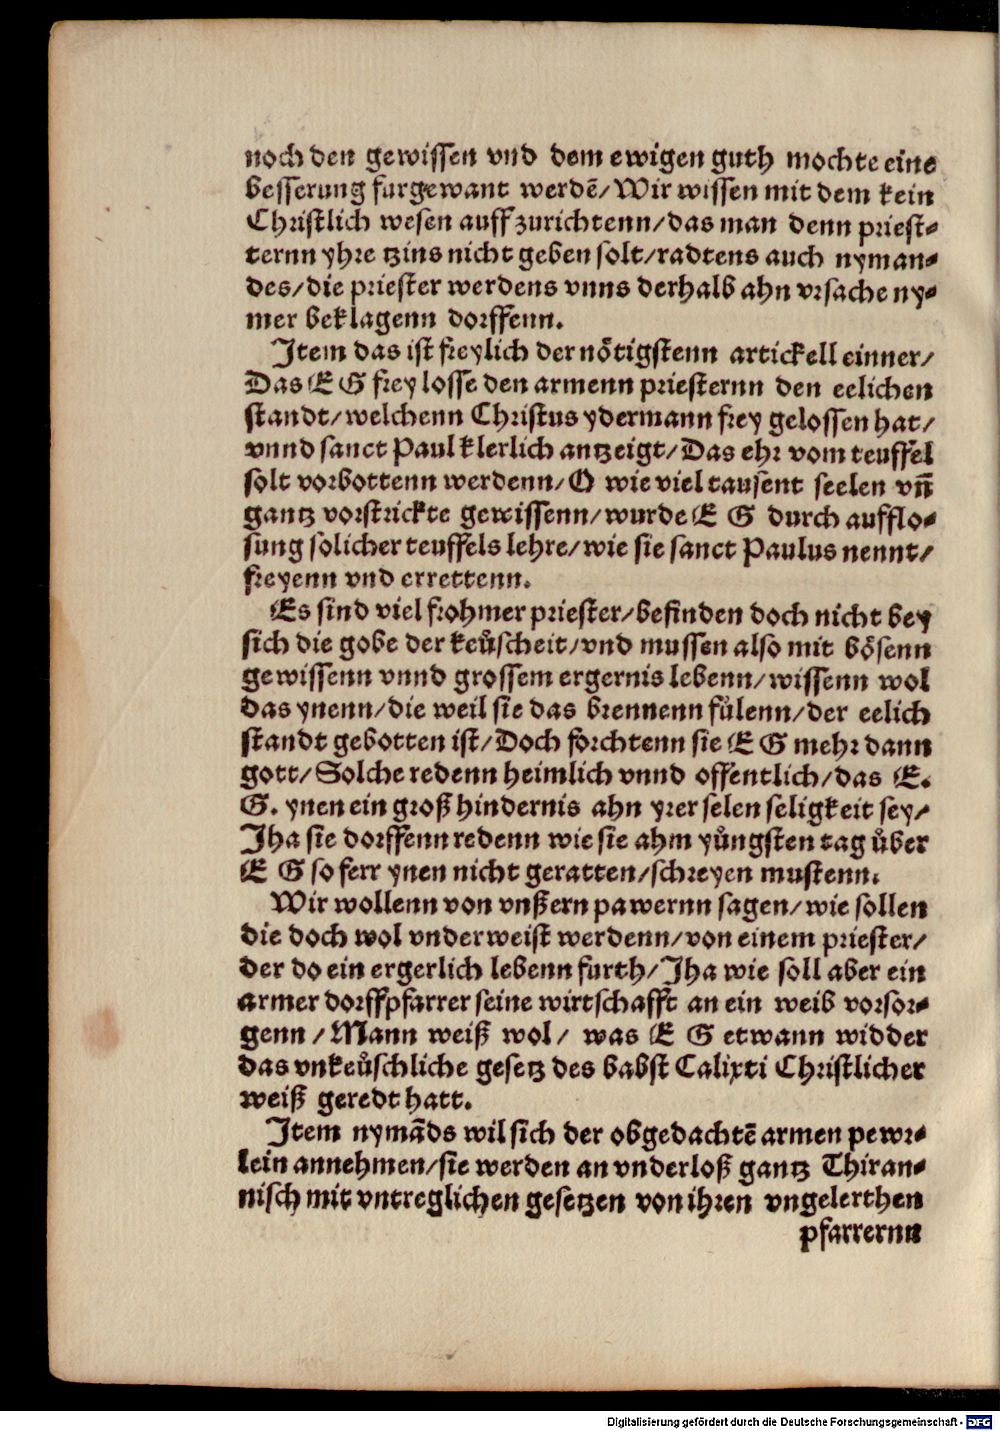 noch den gewissen vnd dem ewigen guth mochte eine
besserung furgewant werdē/Wir wissen mit dem kein
Christlich wesen auff zurichtenn/das man denn priest-
ternn yhre tzins nicht geben solt/radtens auch nyman-
des/die priester werdens vnns derhalb ahn vrsache ny-
mer beklagenn dorffenn.
Item das ist freylich der nötigstenn artickell einner/
Das E G frey losse den armenn priesternn den eelichen
standt/welchenn Christus ydermann frey gelossen hat/
vnnd sanct Paul klerlich antzeigt/Das ehr vom teuffel
solt vorbottenn werdenn/O wie viel tausent seelen vn̄
gantz vorstrickte gewissenn/wurde E G durch aufflo-
sung solicher teuffels lehre/wie sie sanct Paulus nennt/
freyenn vnd errettenn.
Es sind viel frohmer priester/befinden doch nicht bey
sich die gobe der keůscheit/vnd mussen also mit bösenn
gewissenn vnnd grossem ergernis lebenn/wissenn wol
das ynenn/die weil sie das brennenn fůlenn/der eelich
standt gebotten ist/Doch forchtenn sie E G mehr dann
gott/Solche redenn heimlich vnnd offentlich/das E.
G. ynen ein groß hindernis ahn yrer selen seligkeit sey/
Iha sie dorffenn redenn wie sie ahm yůngsten tag ůber
E G so ferr ynen nicht geratten/schreyen mustenn.
Wir wollenn von vnßern pawernn sagen/wie sollen
die doch wol vnderweist werdenn/von einem priester/
der do ein ergerlich lebenn furth/Iha wie soll aber ein
armer dorffpfarrer seine wirtschafft an ein weib vorsor-
genn/Mann weiß wol/ was E G etwann widder
das vnkeůschliche gesetz des babst Calixti Christlicher
weiß geredt hatt.
Item nymāds wil sich der obgedachtē armen pewr-
lein annehmen/sie werden an vnderloß gantz Thiran-
nisch mit vntreglichen gesetzen von ihren vngelerthen
pfarrernn
Digitalisierung gefördert durch die Deutsche Forschungsgemeinschaft - DFG